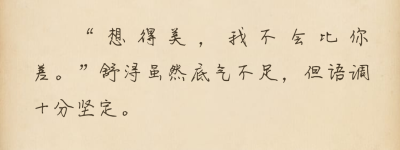 “想得美，我不会比你
差。”舒浔虽然底气不足，但语调
十分坚定。